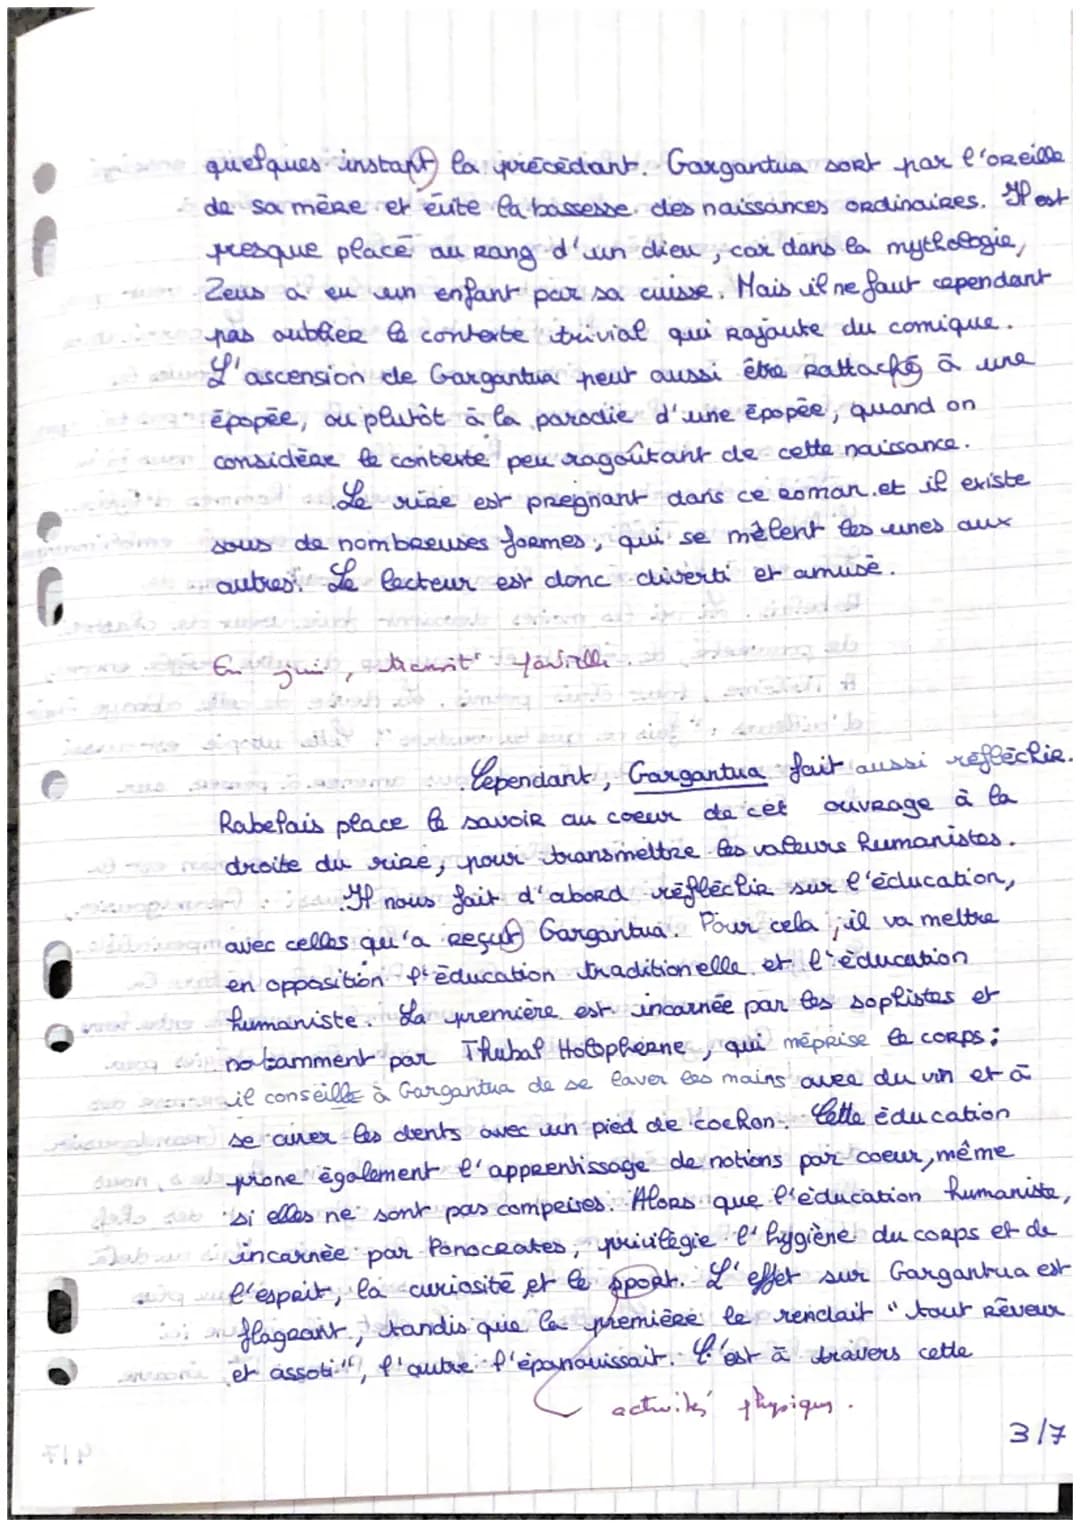 quelques instant la précédant. Gargantua sort par l'oreille
de sa mère et évite la bassesse des naissances ordinaires. Il est
presque placé au rang d'un dieu, car dans la mythologie,
Zeus a eu un enfant par sa cuisse. Mais il ne faut cependant
pas oublier le contexte trivial qui rajoute du comique.
L'ascension de Gargantua peut aussi être rattaché à une
épopée, ou plutôt à la parodie d'une épopée, quand on
considère le contexte peu ragoûtant de cette naissance.
Le rire est prégnant dans ce roman et il existe
sous de nombreuses formes, qui se mêlent les unes aux
autres. Le lecteur est donc diverti et amusé.
transit
Cependant, Gargantua fait aussi réfléchir.
Rabelais place le savoir au coeur de cet ouvrage à la
droite du rire, pour transmettre les valeurs humanistes.
Il nous fait d'abord réfléchir sur l'éducation,
avec celles qu'a reçut Gargantua. Pour cela, il va mettre
en opposition l'éducation traditionelle et l'éducation
humaniste. La première est incarnée par les sophistes et
notamment par Thubal Holopherne, qui méprise le corps :
il conseille à Gargantua de se laver les mains avec du vin et à
se curer les dents avec un pied de cochon. Cette éducation
prone également l'apprentissage de notions par coeur, même
si elles ne sont pas comprises. Alors que l'éducation humaniste,
incarnée par Ponocrates, privilégie l'hygiène du corps et de
l'esprit, la curiosité et le sport. L'effet sur Gargantua est
flagrant, tandis que la première le rendait "tout rêveur
et assoti", l'autre l'épanouissait. C'est à travers cette
activités physiques.
3/7